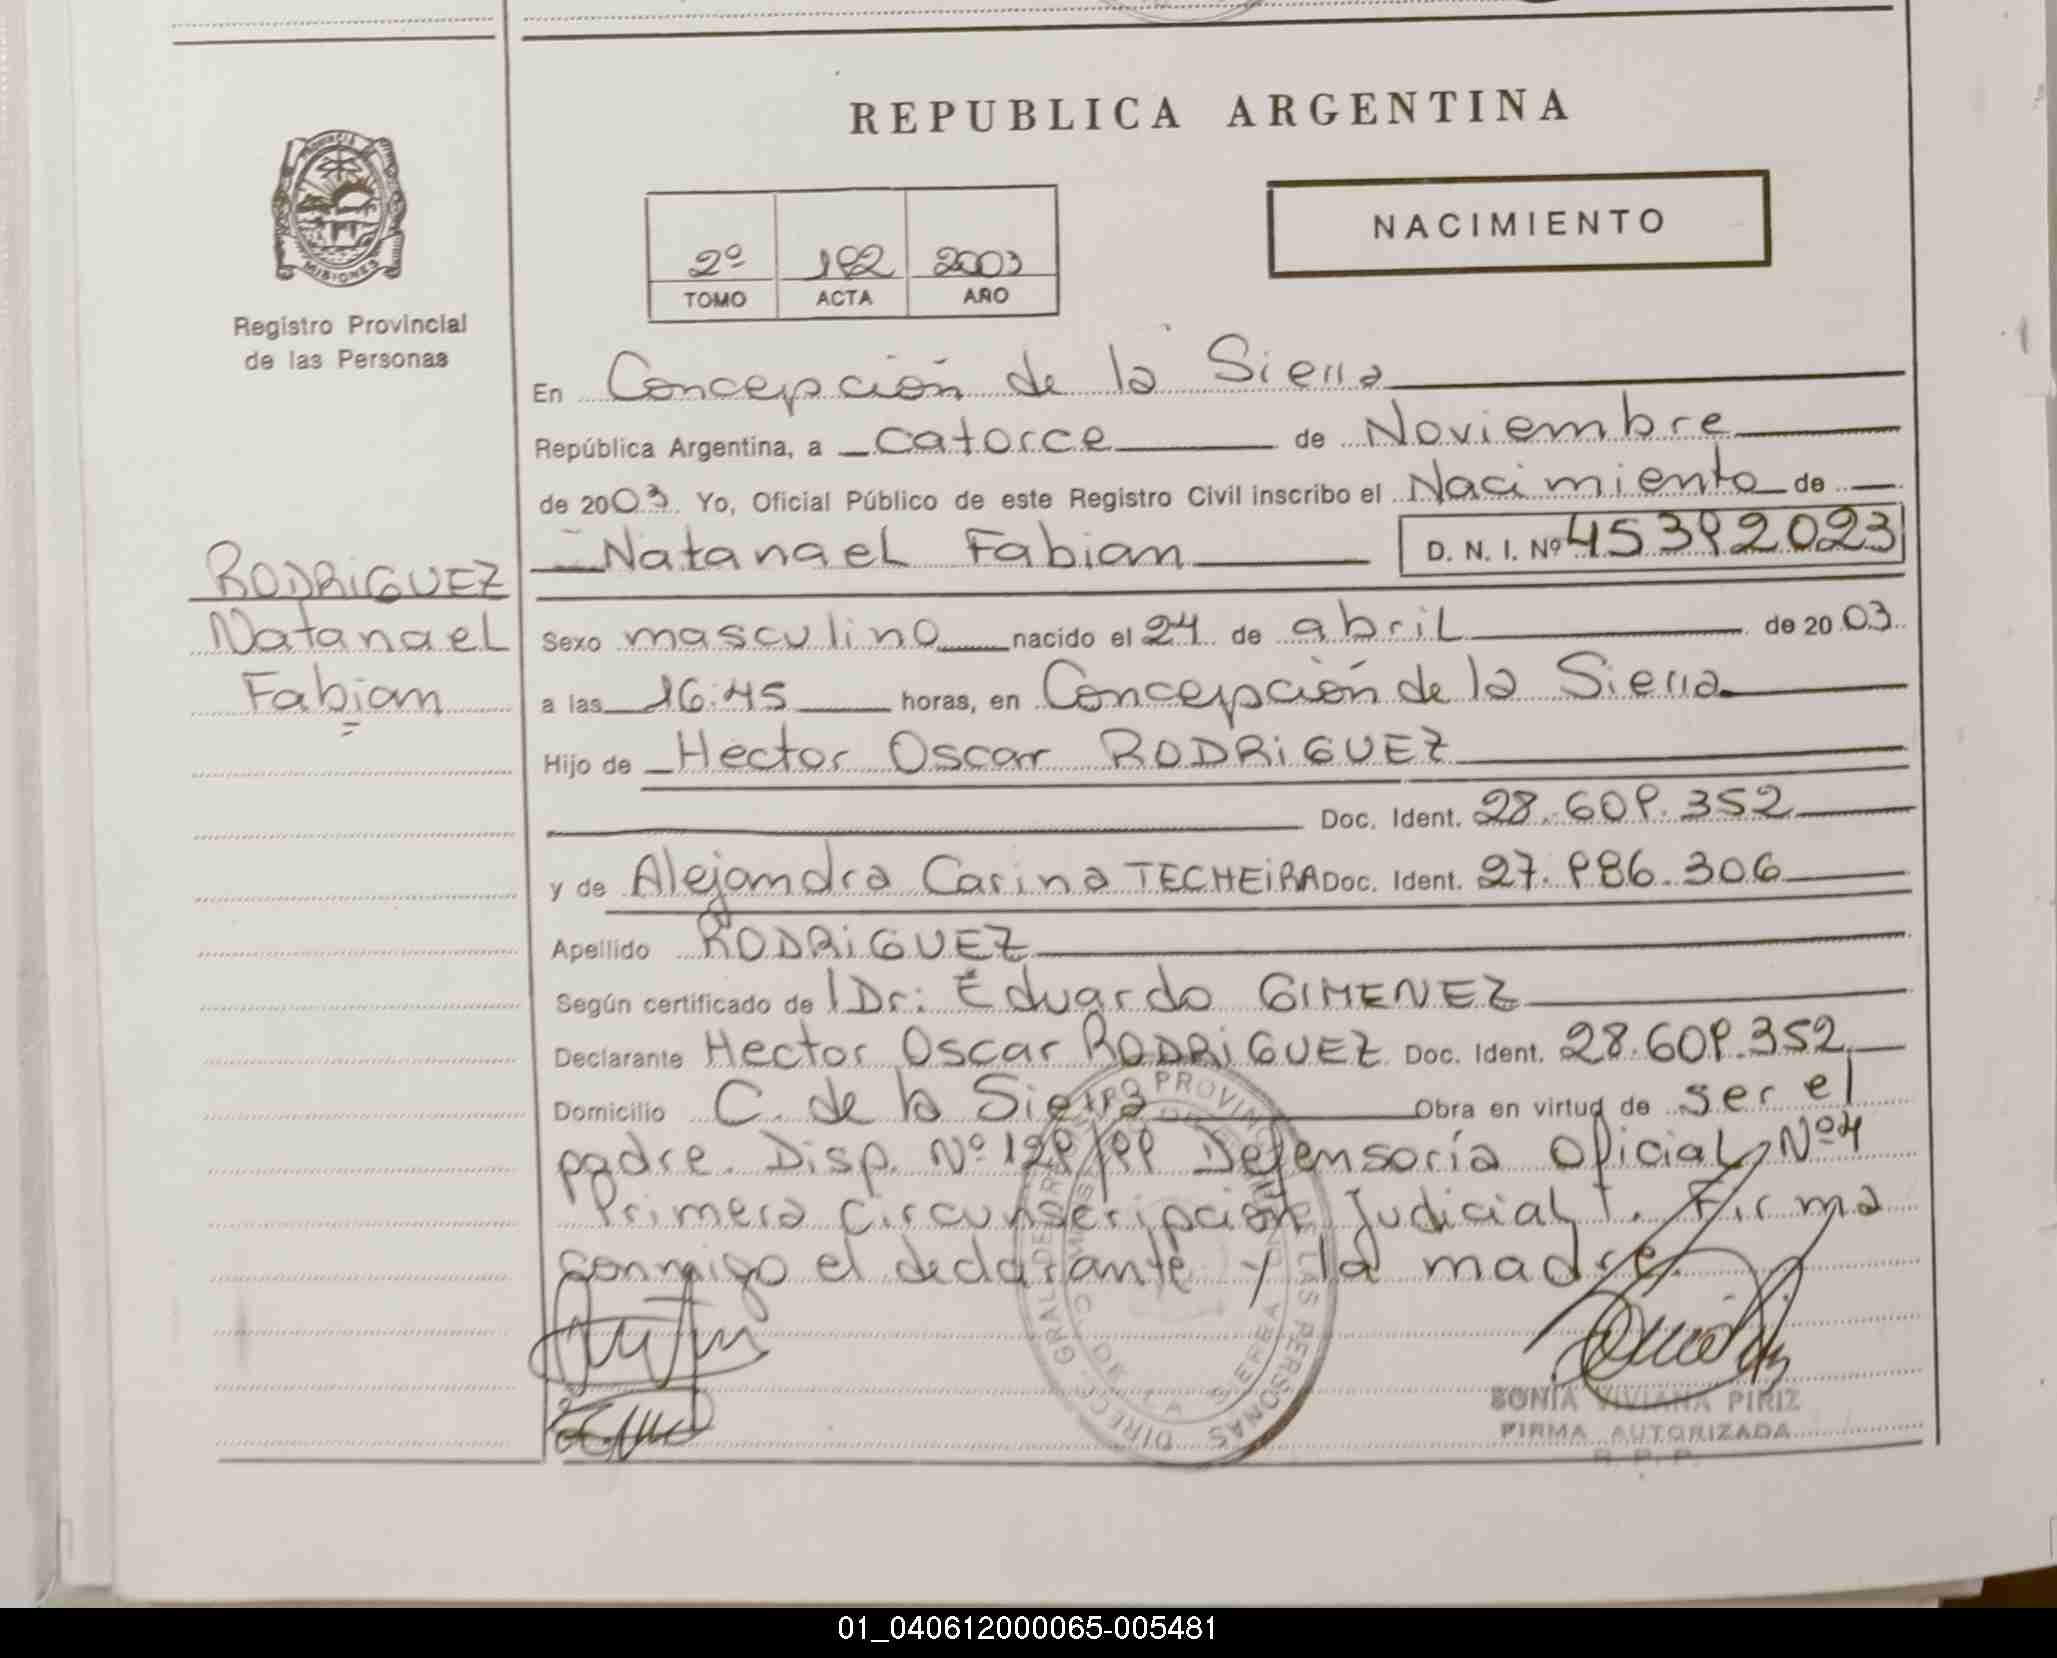 REPUBLICA ARGENTINA
PROVINCIA
MISIONES
Registro Provincial
de las Personas
NACIMIENTO
2º 192 2003
TOMO ACTA AÑO
En Concepción de la Sierra
República Argentina, a catorce de Noviembre
de 2003. Yo, Oficial Público de este Registro Civil inscribo el Nacimiento de
Natanael Fabian D. N. I. Nº 45392023
RODRIGUEZ
Natanael
Fabian
Sexo masculino nacido el 24 de abril de 2003
a las 16:45 horas, en Concepción de la Sierra
Hijo de Hector Oscar RODRIGUEZ
Doc. Ident. 28.609.352
y de Alejandra Carina TECHEIRA Doc. Ident. 27.986.306
Apellido RODRIGUEZ
Según certificado de Dr: Eduardo GIMENEZ
Declarante Hector Oscar RODRIGUEZ Doc. Ident. 28.609.352
Domicilio C. de la Sierra Obra en virtud de ser el
padre. Disp. Nº 129/99 Defensoría Oficial Nº4
Primera Circunscripción Judicial. Firma
conmigo el declarante y la madre.
DIRECC. GRAL DE REGISTRO PROVINCIAL DE LAS PERSONAS
C. DE LA SIERRA
SONIA VIVIANA PIRIZ
FIRMA AUTORIZADA
R. P. P.
01_040612000065-005481